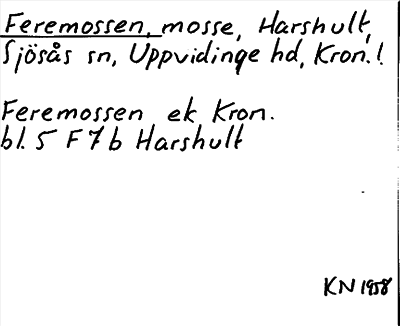 Feremossen, mosse, Harshult,
Sjösås sn, Uppvidinge hd, Kron.!
Feremossen ek Kron.
bl. 5 F 7 b Harshult
KN 1958